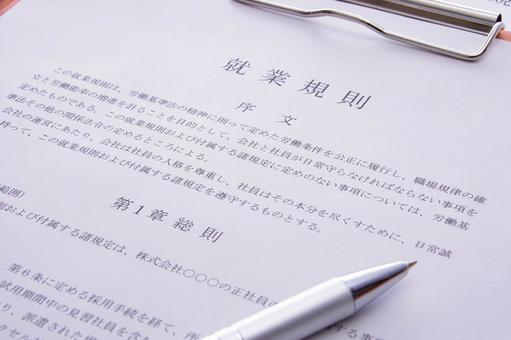 就業規則
序文
この就業規則は、労働基準法の精神に則って定めた労働条件を公正に履行し、職場規律の確
立と労働能率の増進を計ることを目的として、会社と社員が日常守らなければならない事項を
定めたものである。この就業規則および付属する諸規定に定めのない事項については、労働基
準法その他の関係法令の定めるところによる。
会社の運営にあたり、会社は社員の人格を尊重し、社員はその本分を尽くすために、日常誠
持って、この就業規則および付属する諸規定を遵守するものとする。
第1章総則
範囲）
則および付属する諸規定は、株式会社○○○の正社員の
第6条に定める採用手続を経て、所
試用期間中の見習社員を含
り、派遣された